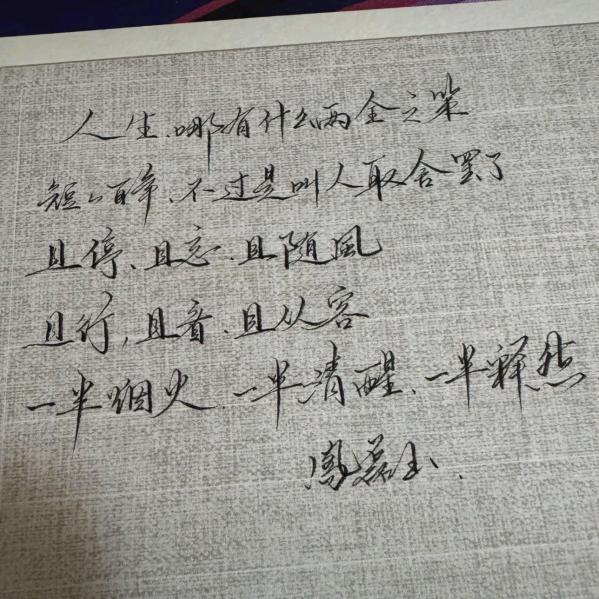 人生、哪有什么两全之策
短々百年、不过是叫人取舍罢了
且停、且忘、且随風
且行,且看、且从容
一半烟火、一半清醒、一半释然